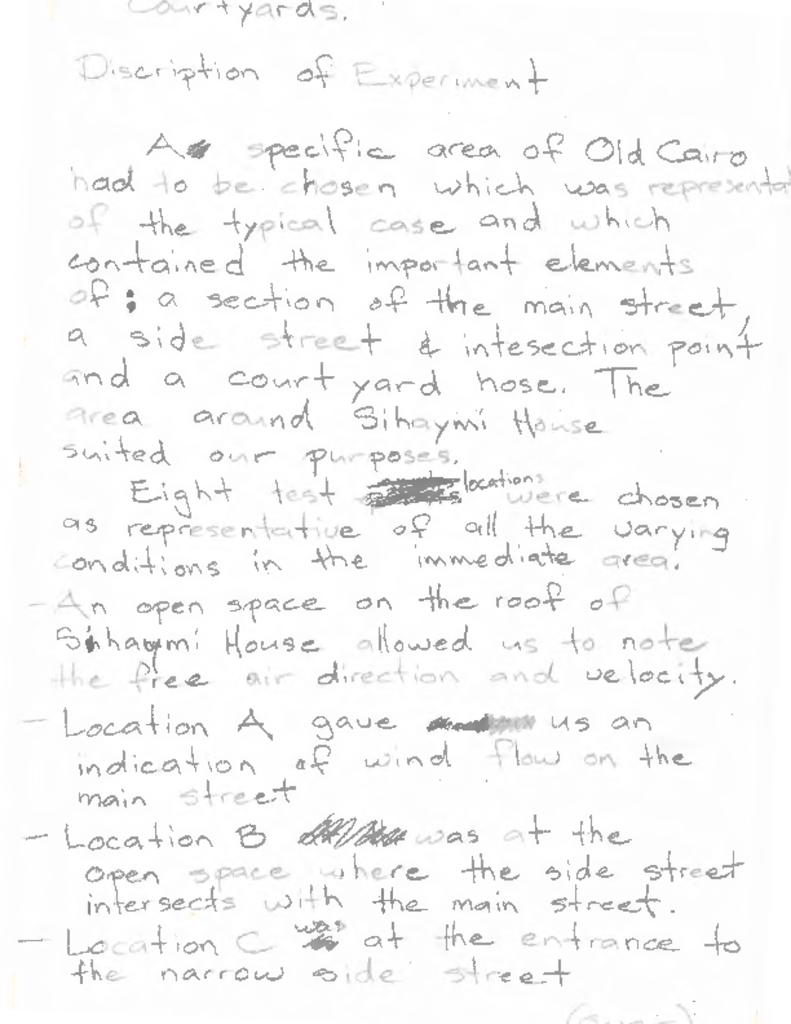 Courtyards.
Discription of Experiment
A specific area of Old Cairo
had to be chosen which was representa
of the typical case and which
contained the important elements
of: a section of the main street,
a side street & intesection point
and a court yard hose. The
area around Sihaymi House
suited our purposes.
Eight test locations were chosen
as representative of all the varying
conditions in the immediate area.
- An open space on the roof of
Sihaymi House allowed us to note
the free air direction and velocity.
- Location A gave us an
indication of wind flow on the
main street
- Location B was at the
open space where the side street
intersects with the main street.
- Location C was at the entrance to
the narrow side street